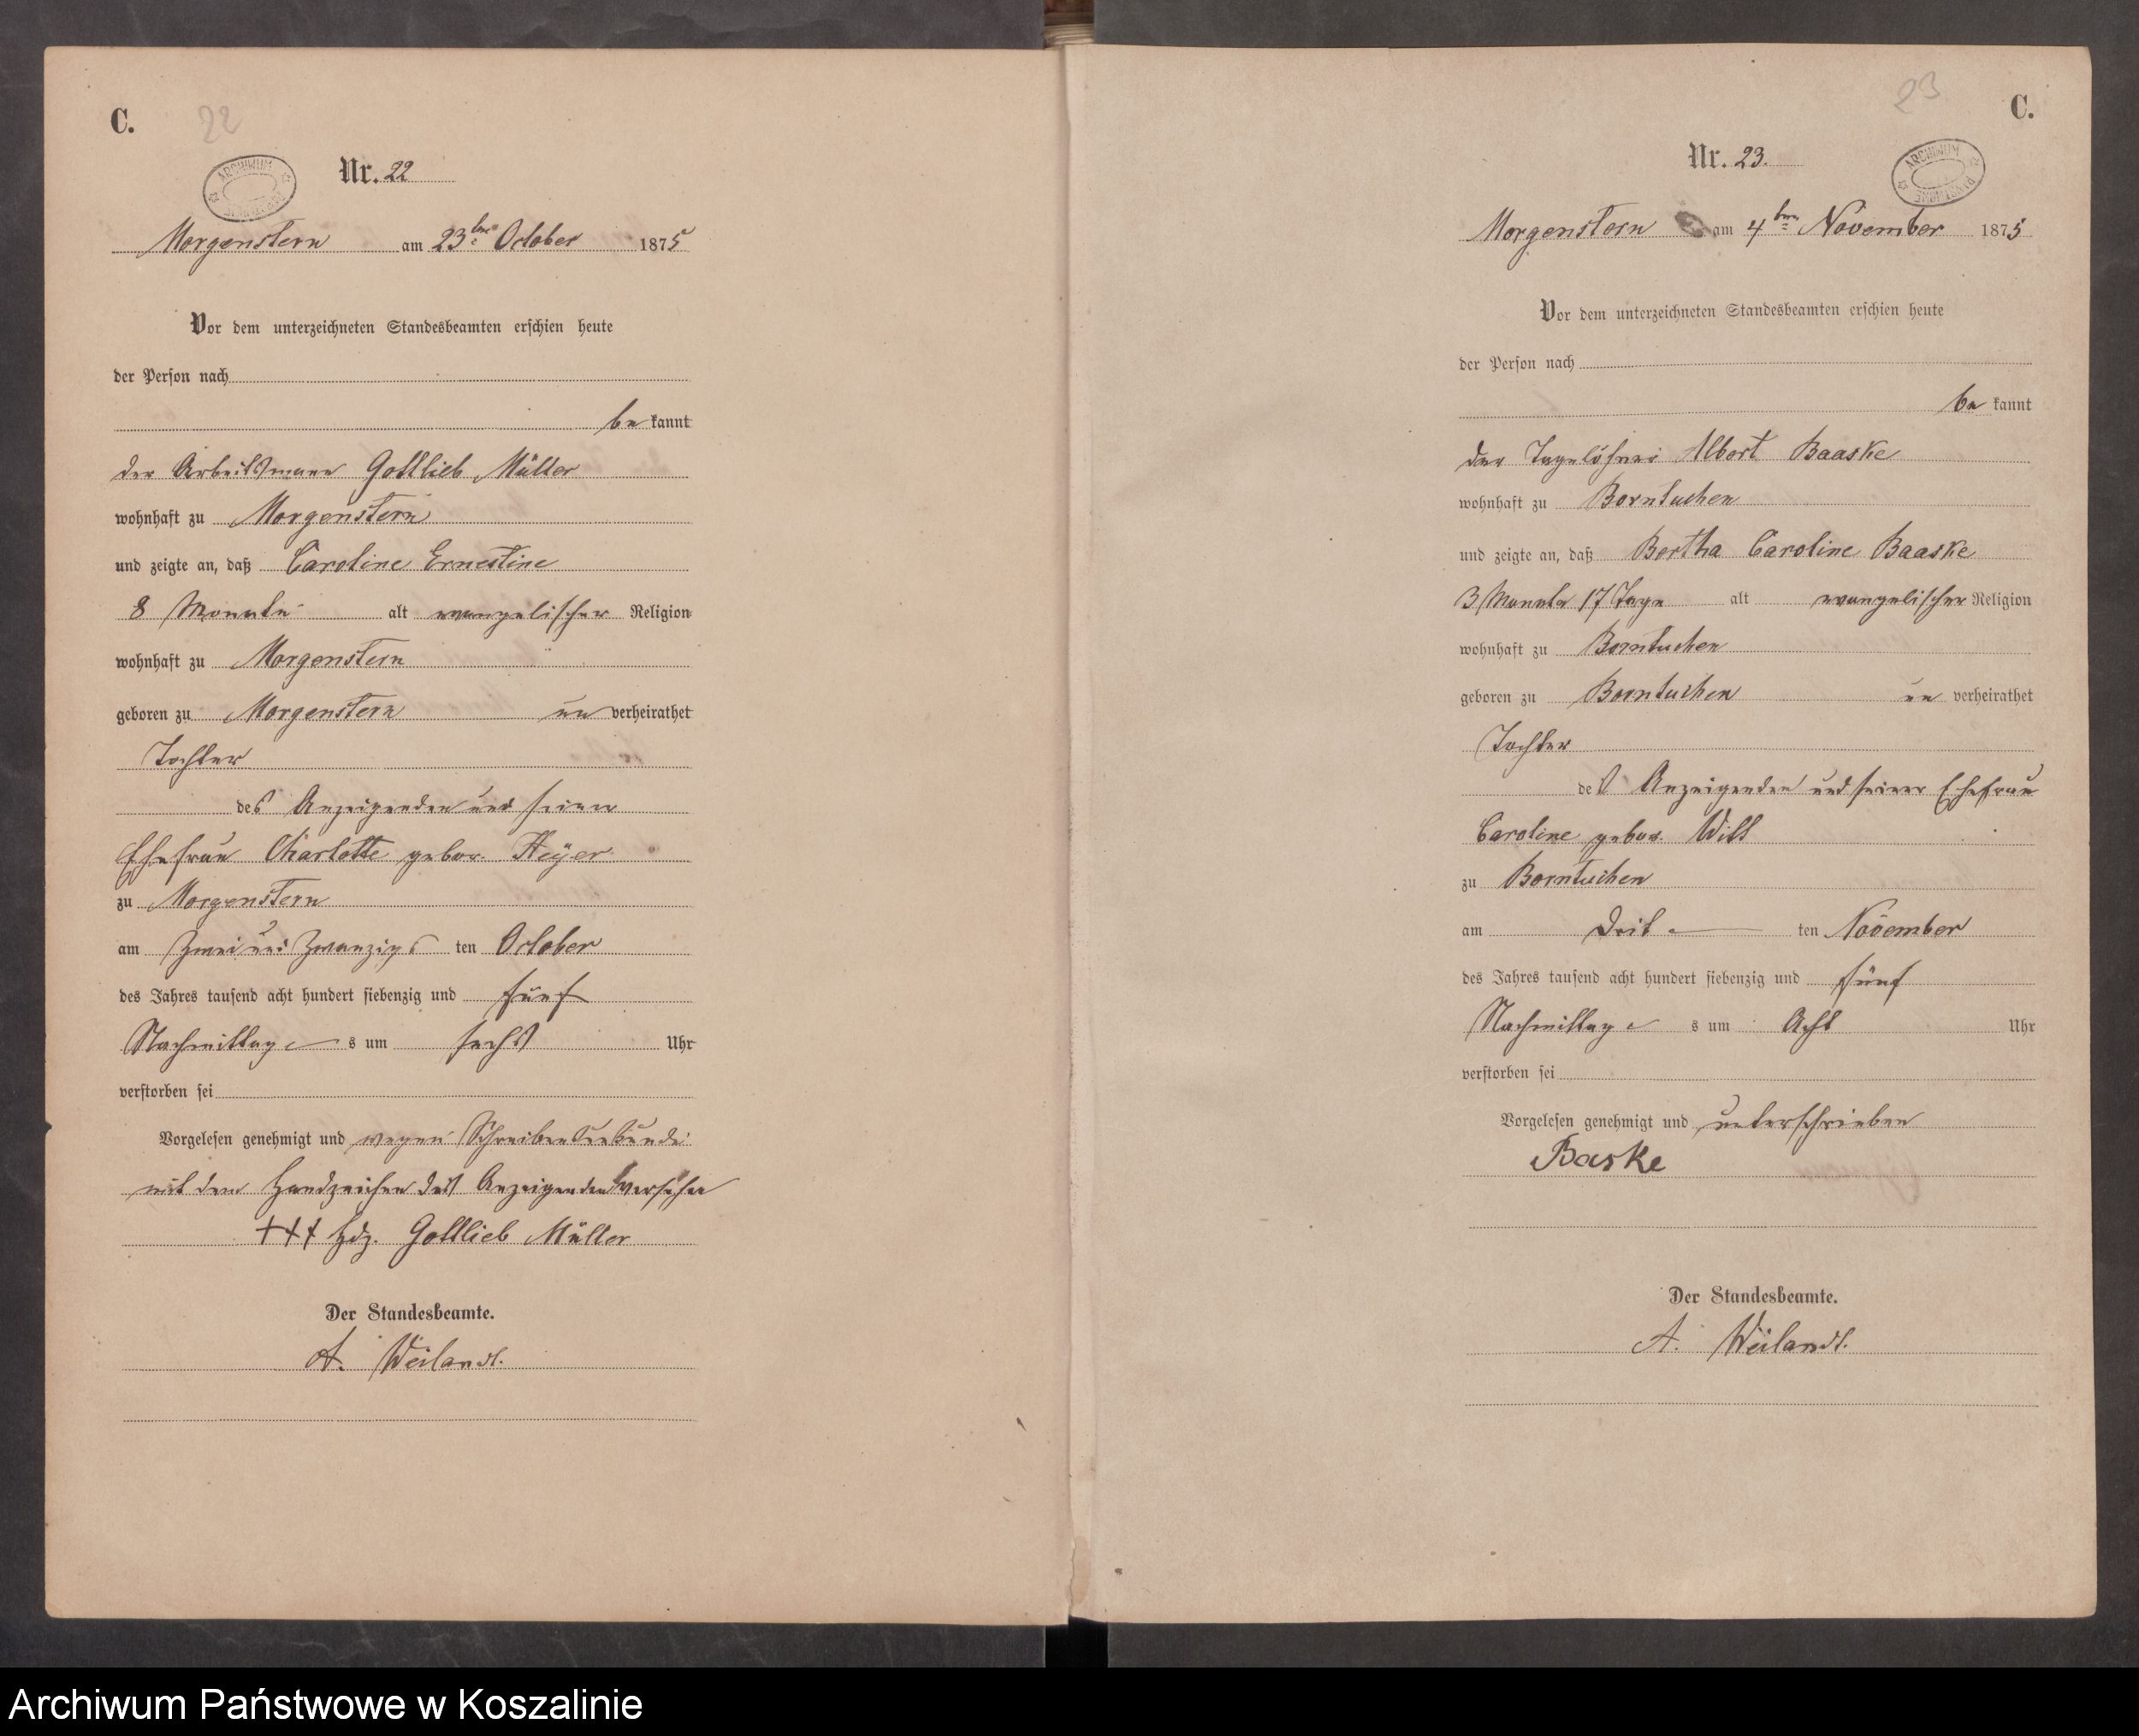 C.
22
ARCHIWUM
Nr. 22
Morgenstern am 23ten October 1875
Vor dem unterzeichneten Standesbeamten erschien heute
der Person nach
be kannt
der Arbeitsmann Gottlieb Müller
wohnhaft zu Morgenstern
und zeigte an, daß Caroline Ernestine
8 Monate alt evangelischer Religion
wohnhaft zu Morgenstern
geboren zu Morgenstern un verheirathet
Tochter
des Anzeigenden und seiner
Ehefrau Charlotte gebor. Heyer
zu Morgenstern
am zwei und zwanzigs ten October
des Jahres tausend acht hundert siebenzig und fünf
Nachmittag s um sechs Uhr
verstorben sei
Vorgelesen genehmigt und wegen Schreibensunkunde
mit dem Handzeichen des Anzeigenden versehen
+++ Hdz. Gottlieb Müller
Der Standesbeamte.
A. Weilandt.
23
C.
ARCHIWUM
Nr. 23.
Morgenstern am 4ten November 1875
Vor dem unterzeichneten Standesbeamten erschien heute
der Person nach
be kannt
der Tagelöhner Albert Baaske
wohnhaft zu Borntuchen
und zeigte an, daß Bertha Caroline Baaske
3 Monate 17 Tage alt evangelischer Religion
wohnhaft zu Borntuchen
geboren zu Borntuchen un verheirathet
Tochter
des Anzeigenden und seiner Ehefrau
Caroline gebor. Will
zu Borntuchen
am Drit ten November
des Jahres tausend acht hundert siebenzig und fünf
Nachmittag s um Acht Uhr
verstorben sei
Vorgelesen genehmigt und unterschrieben
Baske
Der Standesbeamte.
A. Weilandt.
Archiwum Państwowe w Koszalinie